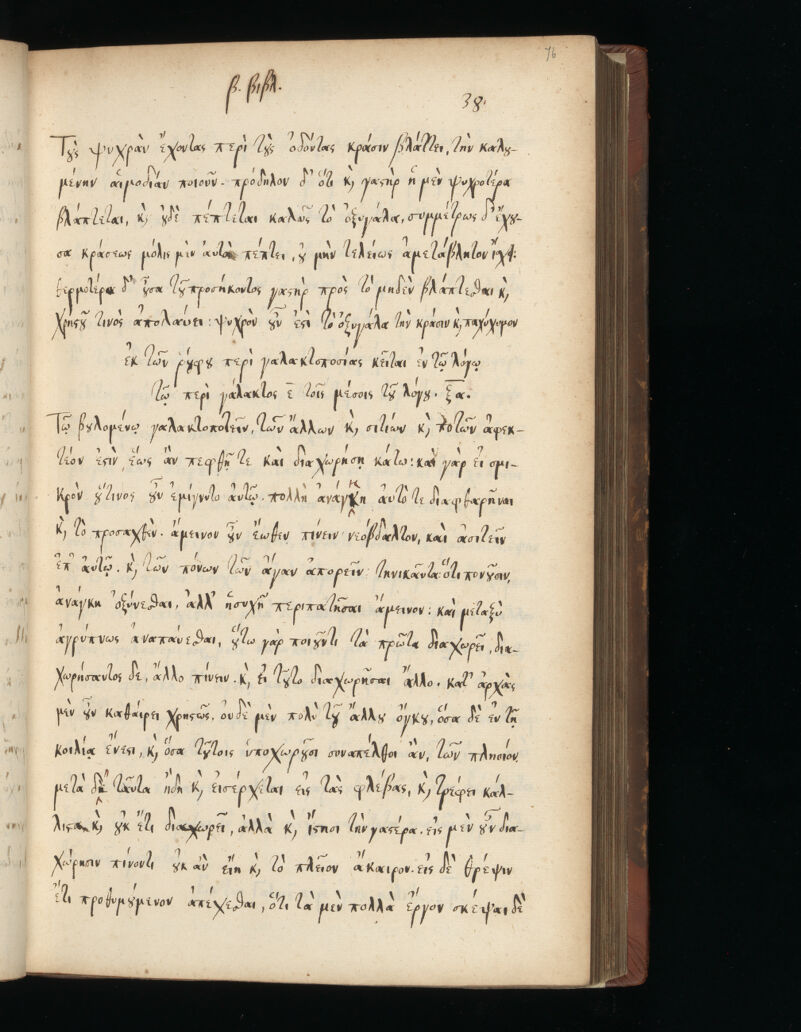 76
β. βιβλ.
38.
Τοὺς ψυχρὰν ἔχοντας περὶ τοὺς ὀδόντας κράσιν βλάπτει, τὴν καλου-
μένην αἱμοδίαν ποιοῦν. πρόδηλον δ' ὅτι κ̀ γαστὴρ ἡ μὲν ψυχροτέρα
βλάπτεται, κ̀ οὐδὲ πέπτεται καλῶς τὸ ὀξυγάλα, συμμέτρως δ' ἔχου-
σα κράσεως μόλις μὲν αὐτὸ πέπτει, οὐ μὴν τελείως ἀμετάβλητον
θερμοτέρα δ' οὖσα τοῦ προσήκοντος γαστὴρ πρὸς τὸ μηδὲν βλάπτεσθαι κ̀
χρηστοῦ τινὸς ἀπολαύει: ψυχρὸν οὖν ἐστὶ τὸ ὀξυγάλα τὴν κράσιν κ̀ παχύχυμον
ἐκ τῶν ῥούφου περὶ γαλακτοποσίας κεῖται ἐν τῷ λόγῳ
τῷ περὶ γάλακτος ἐ τοῖς μέσοις τοῦ λόγου. ξα.
Τῷ βουλομένῳ γαλακτοποτεῖν, τῶν ἄλλων κ̀ σιτίων κ̀ ποτῶν ἀφεκ-
τέον ἐστὶν, ἕως ἂν πεφθῇ τε καὶ διαχωρήσῃ κάτω: καὶ γὰρ εἰ σμι-
κρὸν οὕτινος οὖν ἐμίγνυτο αὐτῷ. πολλὴ ἀνάγκη αὐτό τε διαφθαρῆναι
κ̀ τὸ προσαχθὲν. ἄμεινον οὖν ἕωθεν πίνειν νεόβδαλτον, καὶ ἀσιτεῖν
ἐπ' αὐτῷ. κ̀ τῶν πόνων τῶν ἄγαν ἀπορεῖν: τηνικαῦτα ὅτι πονοῦσιν,
ἀνάγκη ὀξύνεσθαι, ἀλλ' ἡσυχῇ περιπατῆσαι ἄμεινον: καὶ μεταξὺ
ἀγρύπνως ἀναπάυεσθαι, οὕτω γὰρ ποιοῦντι τὰ πρῶτα διαχωρεῖ, δια-
χωρήσαντος δε, ἄλλο πίνειν. κ̀ εἰ τοῦτο διαχωρῆσαι ἄλλο. κατ' ἀρχὰς
μὲν οὖν καθαίρει χρηστῶς, οὐδὲ μὲν πολὺ τοῦ ἄλλου ὄγκου, ὅσα δὲ ἐν τῇ
κοιλίᾳ ἔνεστι, κ̀ ὅσα τούτοις ὑποχωροῦσι συναπέλθοι ἂν, τῶν πλησίον.
μετὰ δὴ ταῦτα ἤδη κ̀ εἰσέρχεται εἰς τὰς φλέβας, κ̀ τρέφει κάλ-
λιστα κ̀ οὐκ ἔτι διαχωρεῖ, ἀλλὰ κ̀ ἵστησι τὴν γαστέρα. εἰς μὲν οὖν δια-
χώρησιν πίνοντι οὐκ ἂν εἴη κ̀ τὸ πλεῖον ἄκαιρον. εἰς δὲ θρέψιν
ἔτι προθυμούμενον ἀπέχεσθαι, ὅτι τὰ μὲν πολλὰ ἔργον σκέψαι δὲ